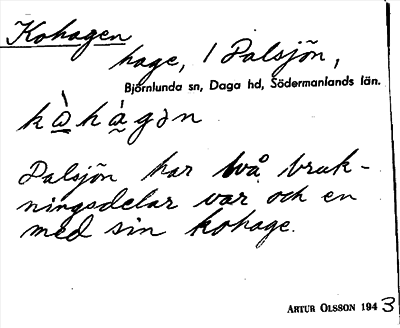 Kohagen
hage, / Dalsjön,
Björnlunda sn, Daga hd, Södermanlands län.
kὰhàgən
Dalsjön har två bruk-
ningsdelar var och en
med sin kohage.
ARTUR OLSSON 1943